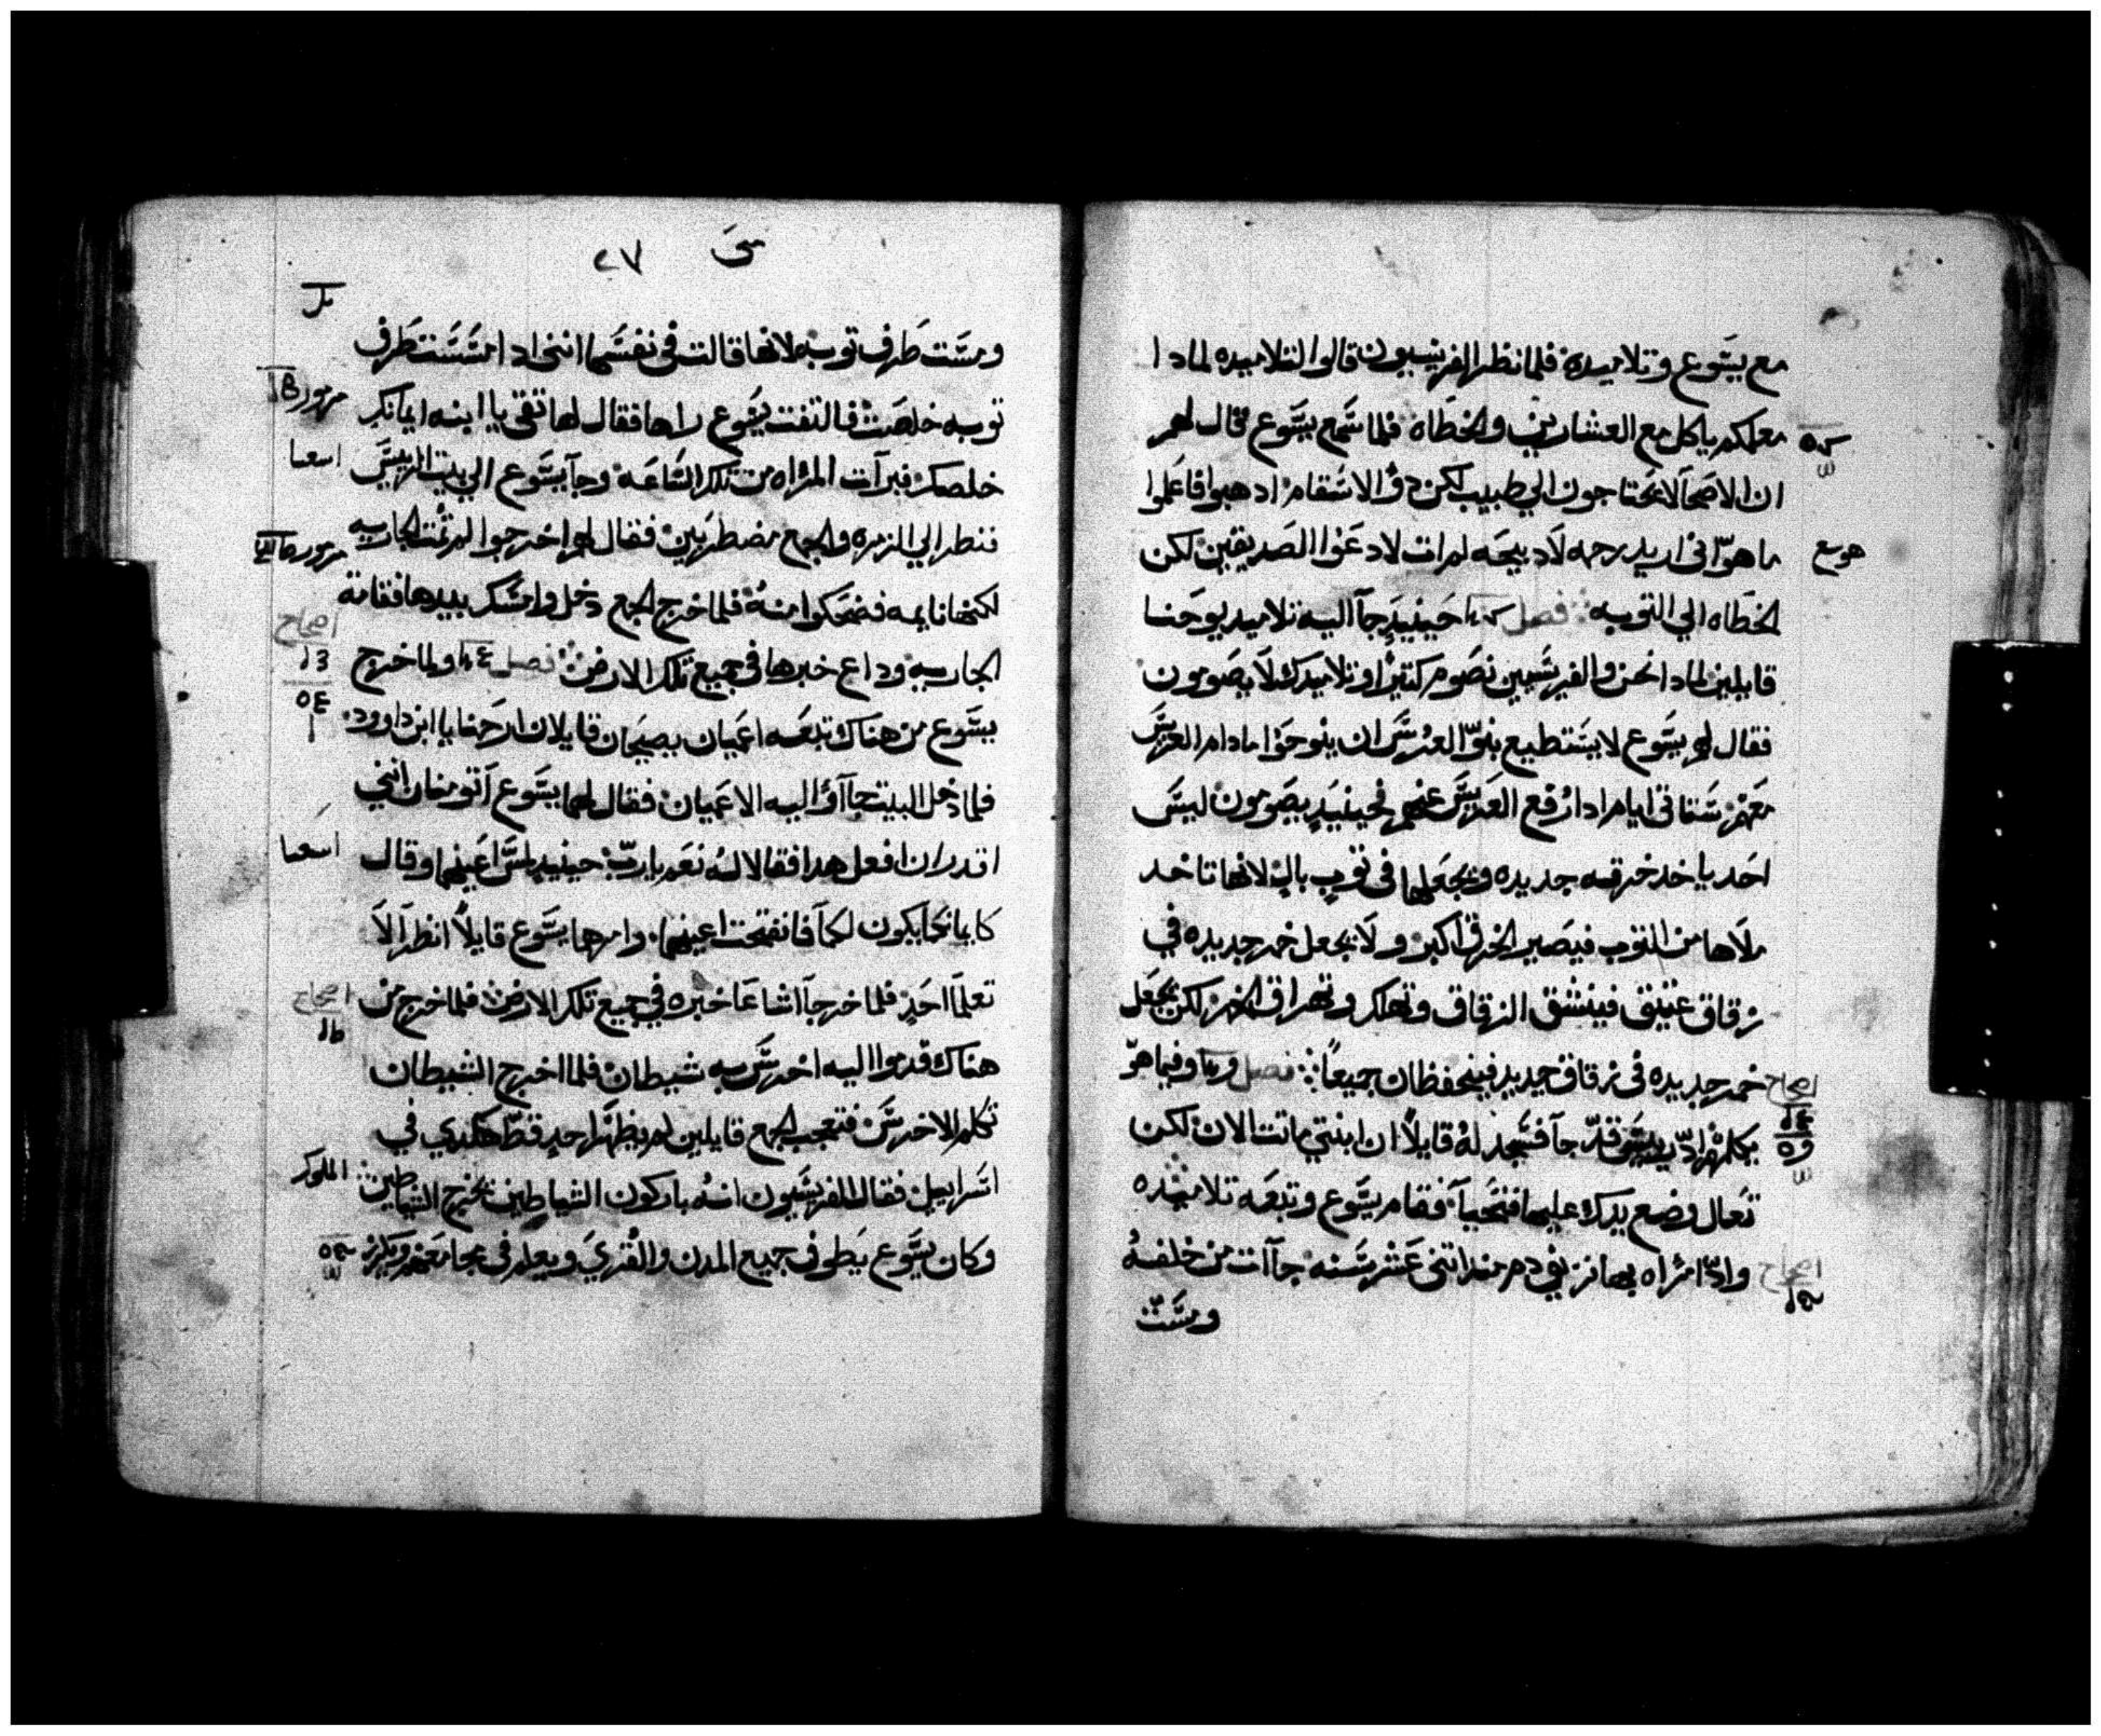 مع يسوع وتلاميده فلما نظر الفريسيون قالوا لتلاميده لمادا
معلمكم ياكل مع العشارين والخطاه فلما سمع يسوع قال لهم
ان الاصحآ لا يحتاجون الي طبيب لكن دوُّ الاسقام ادهبوا فاعلموا
ما هوّ اني اريد رحمه لا دبيحه لم ات لادعوا الصديقين لكن
هوسع
الخطاه الي التوبه فصل حينيدٍ جآ اليه تلاميد يوحنا
قايلين لمادا نحن والفريسيين نصوم كتيرًا وتلاميدك لا يصومون
فقال لهم يسوع لا يستطيع بنوّا العرس ان ينوحوا مادام العريس
معهم ستاتي ايام ادا رفع العريس عنهم فحينيدٍ يصومون ليس
احد ياخد خرقه جديده ويجعلها في توبٍ بالٍ لانها تاخد
ملاها من التوب فيصير الخرق اكبر ولا يجعل خمر جديده في
زقاق عتيق فينشق الزقاق وتهلك وتهراق الخمر لكن يجعل
خمر جديده في زقاق جديد فينحفظان جميعاً فصل وفيما هوّ
اصحاح
يكلمهم ادّ برييس قدّ جآ فسجد لهُ قايلاً ان ابنتي ماتت الان لكن
تعال وضع يدك عليها فتحيآ فقام يسوع وتبعه تلاميده
وادّا مرّاه بها نزيف دم مند اتني عشر سنه جآات من خلفهُ
اصحاح
ومسّت
متى ٢٧
ومسّت طرف توبه لانها قالت في نفسها انني ادا مسست طرف
توبه خلصت فالتفت يسوع راها فقال لها تقي يا ابنه ايمانك
مزمور
خلصك فبرآت المراه من تلك السّاعه وجآ يسوع الي بيت الرييس
اسعيا
فنظر الي الزمره والجمع مضطربين فقال لهم اخرجوا لم تمت الجاريه
مزمور
لكنها نايمه فضحكوا منهُ فلما خرج الجمع دخل وامسك بيدها فقامة
اصحاح
الجاريه وداع خبرها في جميع تلك الارض فصل ولما خرج
يسوع من هناك تبعه اعميان يصيحان قايلان ارحمنا يا ابن داوود
فلما دخل البيت جآاوُّا اليه الاعميان فقال لهما يسوع آتومنان انني
اقدر ان افعل هدا فقالا لهُ نعم يا ربّ حينيدٍ لمس اعينهما وقال
اسعيا
كايمانكما يكون لكمآ فانفتحت اعينهما وامرهما يسوع قايلاً انظرا لا
تعلمآ احدٍ فلما خرجآ اشاعا خبره في جميع تلك الارض فلما خرج من
اصحاح
هناك قدموا اليه اخرس به شيطان فلما اخرج الشيطان
تكلم الاخرس فتعجب الجمع قايلين لم يظهر احدٍ قط هكدي في
اسراييل فقال الفريسيون انهُ باركون الشياطين يخرج الشياطين
الملوك
وكان يسوع يطوف جميع المدن والقري ويعلم في مجامعهم ويكرز